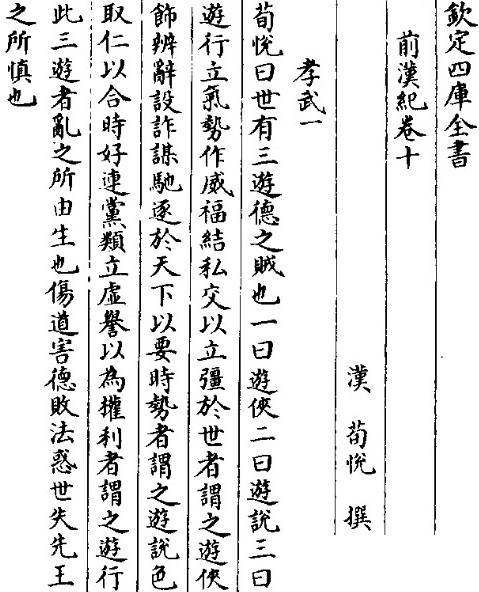 欽定四庫全書
前漢紀卷十
漢 荀悅 撰
孝武一
荀悅曰世有三遊德之賊也一曰遊俠二曰遊說三曰
遊行立氣勢作威福結私交以立彊於世者謂之遊俠
飾辨辭設詐謀馳逐於天下以要時勢者謂之遊說色
取仁以合時好連黨類立虛譽以為權利者謂之遊行
此三遊者亂之所由生也傷道害德敗法惑世失先王
之所慎也